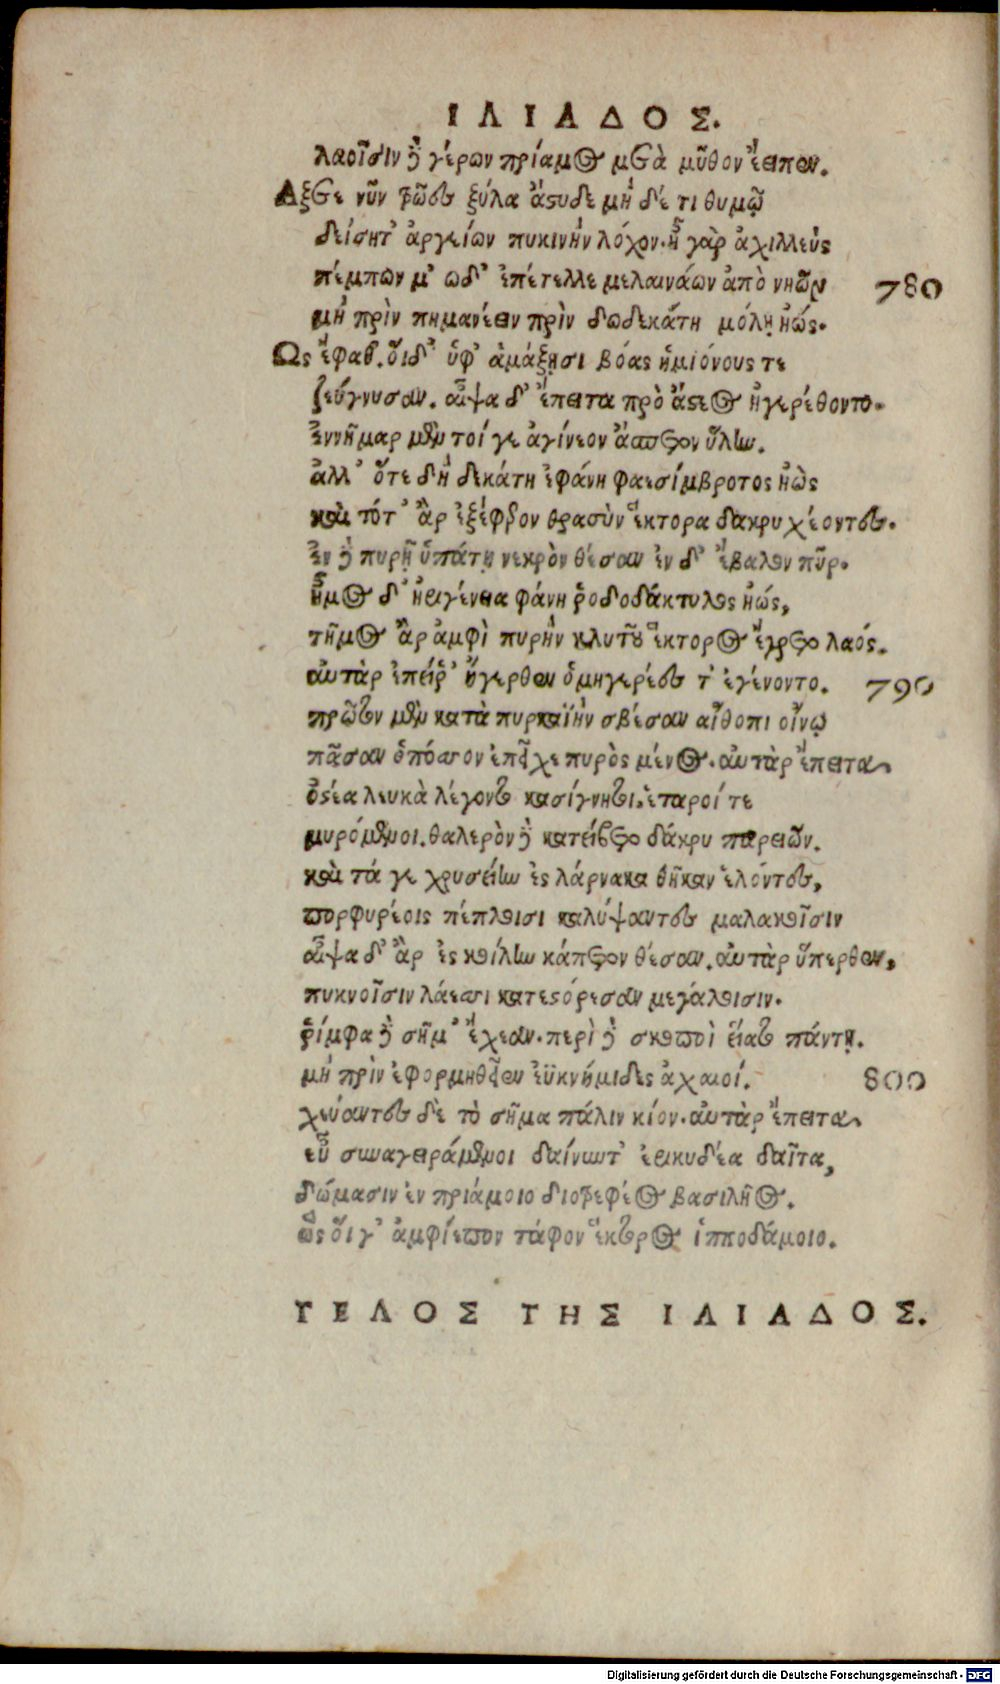 ΙΛΙΑΔΟΣ.
λαοῖσιν δ̀ γέρων πρίαμος μετὰ μῦθον ἔειπεν.
Ἄξετε νῦν τρῶες ξύλα ἄστυδε μὴ δέ τι θυμῷ
δείσητ' ἀργείων πυκινὴν λόχον. ἦ γὰρ ἀχιλλεὺς
πέμπων μ' ωδ' ἐπέτελλε μελαινάων ἀπὸ νηῶν 780
μὴ πρὶν πημανέειν πρὶν δωδεκάτη μόλῃ ἠώς.
Ως ἔφαθ. ὅιδ' ὑφ' ἀμάξῃσι βόας ἡμιόνους τε
ζεύγνυσαν. αἶψα δ' ἔπειτα πρὸ ἄστεος ἠγερέθοντο.
ἐννῆμαρ μὲν τοί γε ἀγίνεον ἄσπετον ὕλην.
ἀλλ' ὅτε δὴ δεκάτη ἐφάνη φαεσίμβροτος ἠὼς
καὶ τότ' ἂρ ἐξέφερον θρασὺν ἕκτορα δακρυ χέοντες.
ἐν δ̀ πυρῇ ὑπάτῃ νεκρὸν θέσαν ἐν δ' ἔβαλον πῦρ.
ἦμος δ' ἠειγένεια φάνη ῥοδοδάκτυλος ἠώς,
τῆμος ἂρ ἀμφὶ πυρὴν κλυτοῦ ἕκτορος ἔγρετο λαός.
αὐτὰρ ἐπείῥ' ἤγερθεν ὁμηγερέες τ' ἐγένοντο. 790
πρῶτον μὲν κατὰ πυρκαϊὴν σβέσαν αἴθοπι οἴνῳ
πᾶσαν ὁπόσσον ἐπέσχε πυρὸς μένος. αὐτὰρ ἔπειτα
ὀστέα λευκὰ λέγοντο κασίγνητοι. ἑταροί τε
μυρόμενοι. θαλερὸν δ̀ κατείβετο δάκρυ παρειῶν.
καὶ τά γε χρυσείην ἐς λάρνακα θῆκαν ἑλόντες,
πορφυρέοις πέπλοισι καλύψαντες μαλακοῖσιν
αἶψα δ' ἂρ ἐς κοίλην κάπετον θέσαν. αὐτὰρ ὕπερθεν,
πυκνοῖσιν λάεσσι κατεστόρεσαν μεγάλοισιν.
ῥίμφα δ̀ σῆμ' ἔχεαν. περὶ δ̀ σκοποὶ εἵατο πάντῃ.
μὴ πρὶν ἐφορμηθεῖεν ἐϋκνήμιδες ἀχαιοί. 800
χεύαντες δὲ τὸ σῆμα πάλιν κίον. αὐτὰρ ἔπειτα
εὖ συναγειράμενοι δαίνυντ' ἐεικυδέα δαῖτα,
δώμασιν ἐν πριάμοιο διοτρεφέος βασιλῆος.
ὣς ὅι γ' ἀμφίεπον τάφον ἕκτορος ἱπποδάμοιο.
ΤΕΛΟΣ ΤΗΣ ΙΛΙΑΔΟΣ.
Digitalisierung gefördert durch die Deutsche Forschungsgemeinschaft - DFG